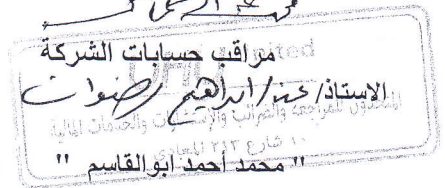 مراقب حسابات الشركة
الاستاذ/ عزت/ ابراهيم رضوان
المتحدون للمراجعة والضرائب والإستشارات والخدمات المالية
١٠ شارع ٢١٣ المعادى
" محمد أحمد ابو القاسم "